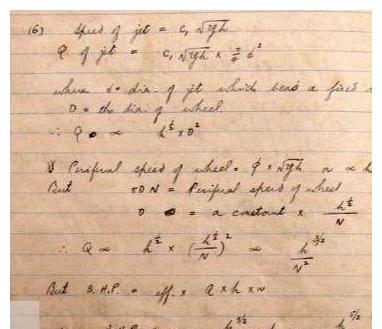 (6) Speed of jet = C, √2gh
Q of jet = C, √2gh × π/4 d²
where d = dia. of jet which bears a fixed
D = the dia. of wheel.
∴ Q ∝ h^½ × D²
V Periferal speed of wheel = φ × √2gh or ∝ h
But πDN = Periferal speed of wheel
D = a constant × h^½/N
∴ Q ∝ h^½ × (h^½/N)² ∝ h^3/2/N²
But B.H.P. = eff. × Q × h × w
h^3/2 h^5/2